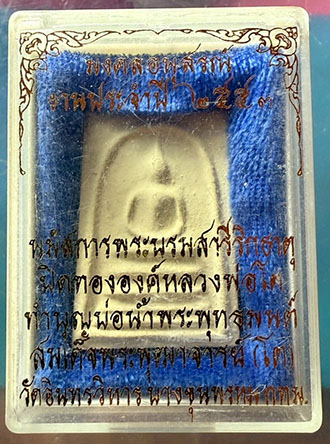 มงคลอนุสรณ์
งานประจำปี ๒๕๔๓
นมัสการพระบรมสารีริกธาตุ
ปิดทององค์หลวงพ่อโต
ทำบุญบ่อน้ำพระพุทธมนต์
สมเด็จพระพุฒาจารย์ (โต)
วัดอินทรวิหาร บางขุนพรหม กทม.